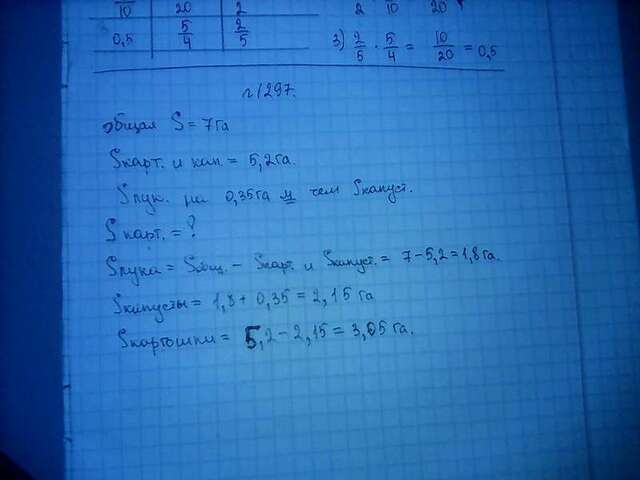 10 | 20 | 2
0,5 | 5/4 | 2/5
2 10 20
3) 2/5 · 5/4 = 10/20 = 0,5
№1297.
общая S = 7га
Sкарт. и кап. = 5,2га.
Sлук. на 0,35га м чем Sкапуст.
Sкарт. = ?
Sлука = Sобщ. - Sкарт. и Sкапуст. = 7-5,2=1,8га.
Sкапусты = 1,8+0,35=2,15 га
Sкартошки = 5,2-2,15=3,05 га.